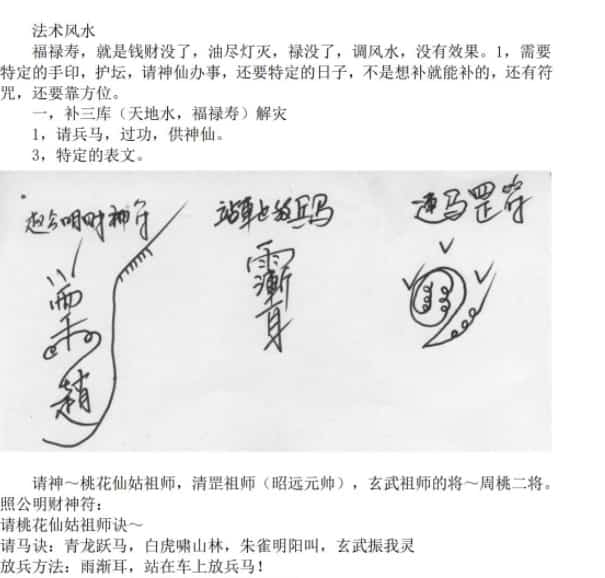 法术风水
福禄寿，就是钱财没了，油尽灯灭，禄没了，调风水，没有效果。1，需要
特定的手印，护坛，请神仙办事，还要特定的日子，不是想补就能补的，还有符
咒，还要靠方位。
一，补三库（天地水，福禄寿）解灾
1，请兵马，过功，供神仙。
3，特定的表文。
赵公明财神符
站车上放兵马
速马罡符
雨渐耳
趙
请神～桃花仙姑祖师，清罡祖师（昭远元帅），玄武祖师的将～周桃二将。
照公明财神符：
请桃花仙姑祖师诀～
请马诀：青龙跃马，白虎啸山林，朱雀明阳叫，玄武振我灵
放兵方法：雨渐耳，站在车上放兵马！